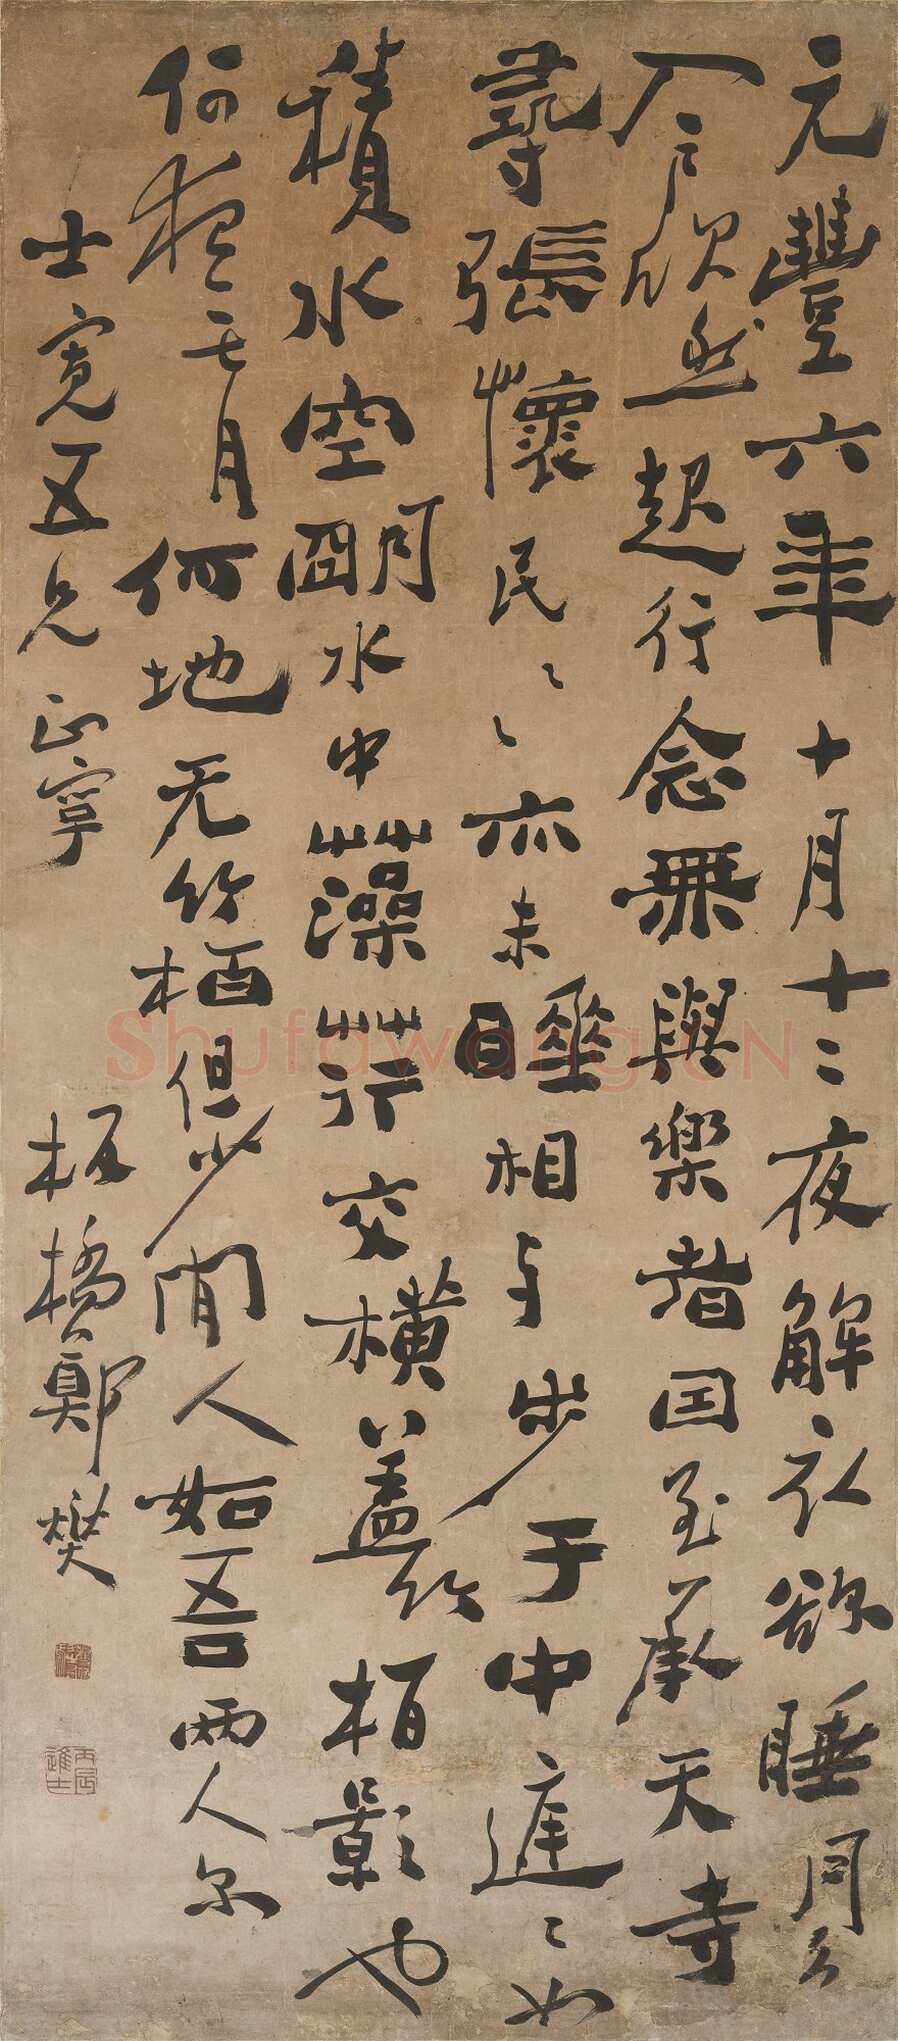 元豐六年十月十二夜解衣欲睡月色
入户欣然起行念無與樂者因至承天寺
尋張懷民〻〻亦未睡相与步于中庭〻如
積水空朙水中藻荇交橫盖竹柏影也
何夜无月何地无竹柏但少閒人如吾兩人尔
士寬五兄正
板橋鄭燮
丙辰進士
Shufawang.CN